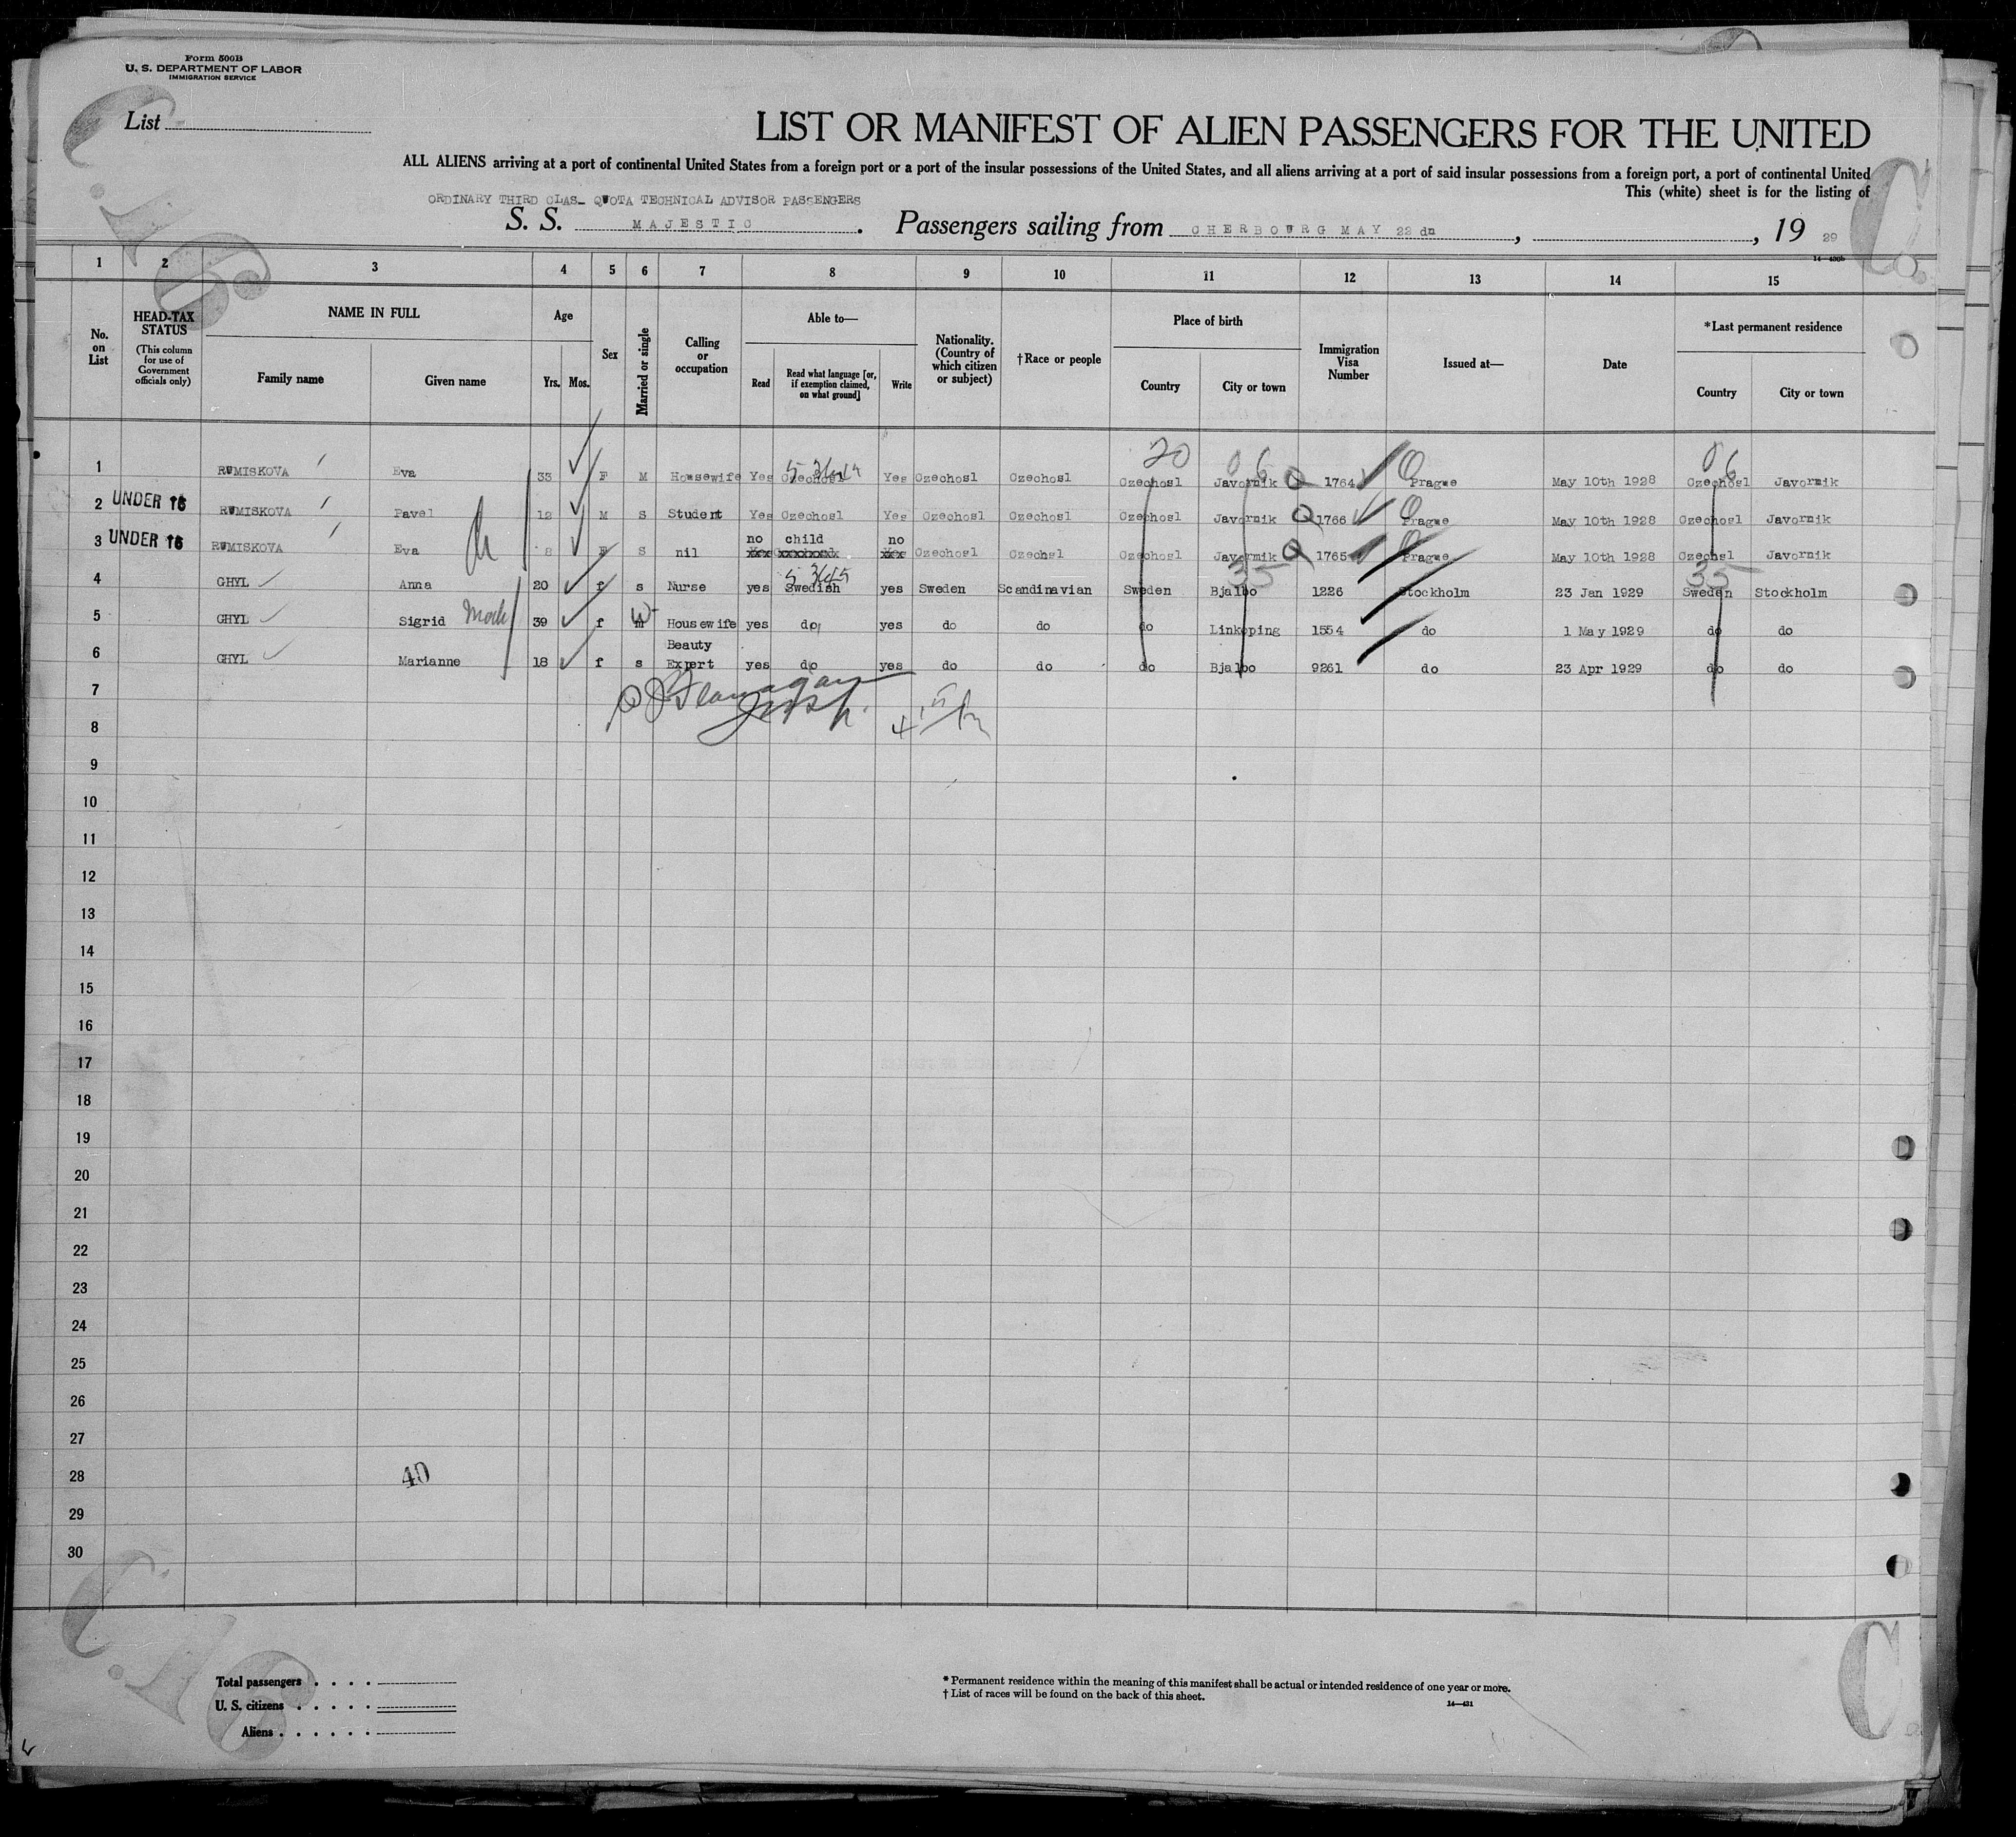 Form 500B
U. S. DEPARTMENT OF LABOR
IMMIGRATION SERVICE
List
LIST OR MANIFEST OF ALIEN PASSENGERS FOR THE UNITED
ALL ALIENS arriving at a port of continental United States from a foreign port or a port of the insular possessions of the United States, and all aliens arriving at a port of said insular possessions from a foreign port, a port of continental United
This (white) sheet is for the listing of
ORDINARY THIRD CLAS_ QUOTA TECHNICAL ADVISOR PASSENGERS
S. S. MAJESTIC. Passengers sailing from CHERBOURG MAY 22 dn, , 19 29
1 2 3 4 5 6 7 8 9 10 11 12 13 14 15
No. on List
HEAD-TAX STATUS (This column for use of Government officials only)
NAME IN FULL
Family name Given name
Age
Yrs. Mos.
Sex
Married or single
Calling or occupation
Able to—
Read Read what language [or, if exemption claimed, on what ground] Write
Nationality. (Country of which citizen or subject)
†Race or people
Place of birth
Country City or town
Immigration Visa Number
Issued at—
Date
*Last permanent residence
Country City or town
20 06 06
1 RUMISKOVA Eva 33 F M Housewife Yes Czechosl Yes Czechosl Czechosl Czechosl Javornik 1764 Prague May 10th 1928 Czechosl Javornik
2 UNDER 16 RUMISKOVA Pavel 12 M S Student Yes Czechosl Yes Czechosl Czechosl Czechosl Javornik 1766 Prague May 10th 1928 Czechosl Javornik
no child no
3 UNDER 16 RUMISKOVA Eva 8 F S nil Czechosl Czechsl Czechosl Javornik 1765 Prague May 10th 1928 Czechsl Javornik
35 35
4 GHYL Anna 20 f s Nurse yes Swedish yes Sweden Scandinavian Sweden Bjalbo 1226 Stockholm 23 Jan 1929 Sweden Stockholm
5 GHYL Sigrid 39 f m Housewife yes do yes do do do Linkoping 1554 do 1 May 1929 do do
6 GHYL Marianne 18 f s Beauty Expert yes do yes do do do Bjalbo 9261 do 23 Apr 1929 do do
7
8
9
10
11
12
13
14
15
16
17
18
19
20
21
22
23
24
25
26
27
28 40
29
30
Total passengers
U. S. citizens
Aliens
* Permanent residence within the meaning of this manifest shall be actual or intended residence of one year or more.
† List of races will be found on the back of this sheet.
14—431